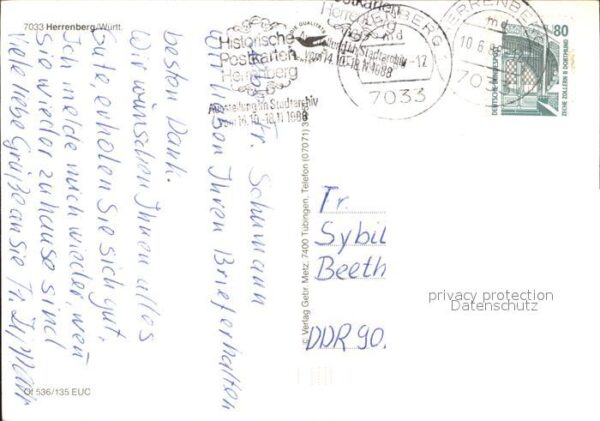 7033 Herrenberg/Württ.
Fr. Schumann
Wir haben Ihren Brief erhalten
besten Dank.
Wir wünschen Ihnen alles
Gute, erholen Sie sich gut,
Ich melde mich wieder, wen
sie wieder zu hause sind
Viele liebe Grüße an sie Fr.
Of 536/135 EUC
© Verlag Gebr. Metz, 7400 Tübingen, Telefon (07071)
Historische
Postkarten
Herrenberg
Ausstellung im Stadtarchiv
vom 14.10.-18.11.1988
HERRENBERG
md
10.6.88
-12
7033
80
DEUTSCHE BUNDESPOST
ZECHE ZOLLERN II DORTMUND
Fr.
Sybil
Beeth
DDR 90.
privacy protection
Datenschutz